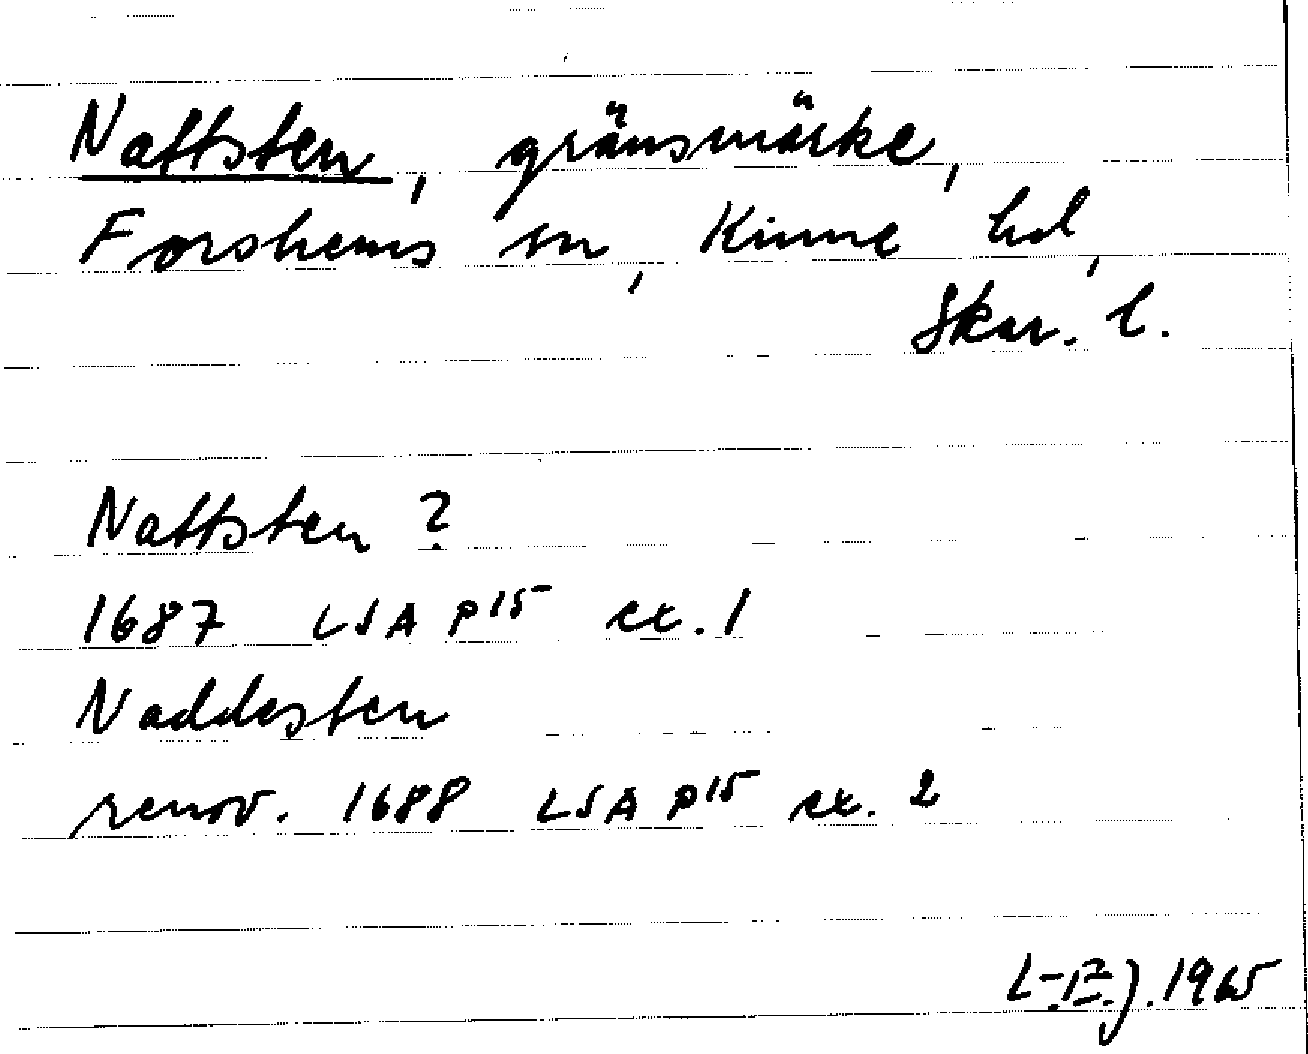 Nattsten, gränsmärke,
Forshems sn, Kinne hd,
Skar. l.
Nattsten ?
1687 LSA P15 ex. 1
Naddesten
renov. 1688 LSA P15 ex. 2
1965